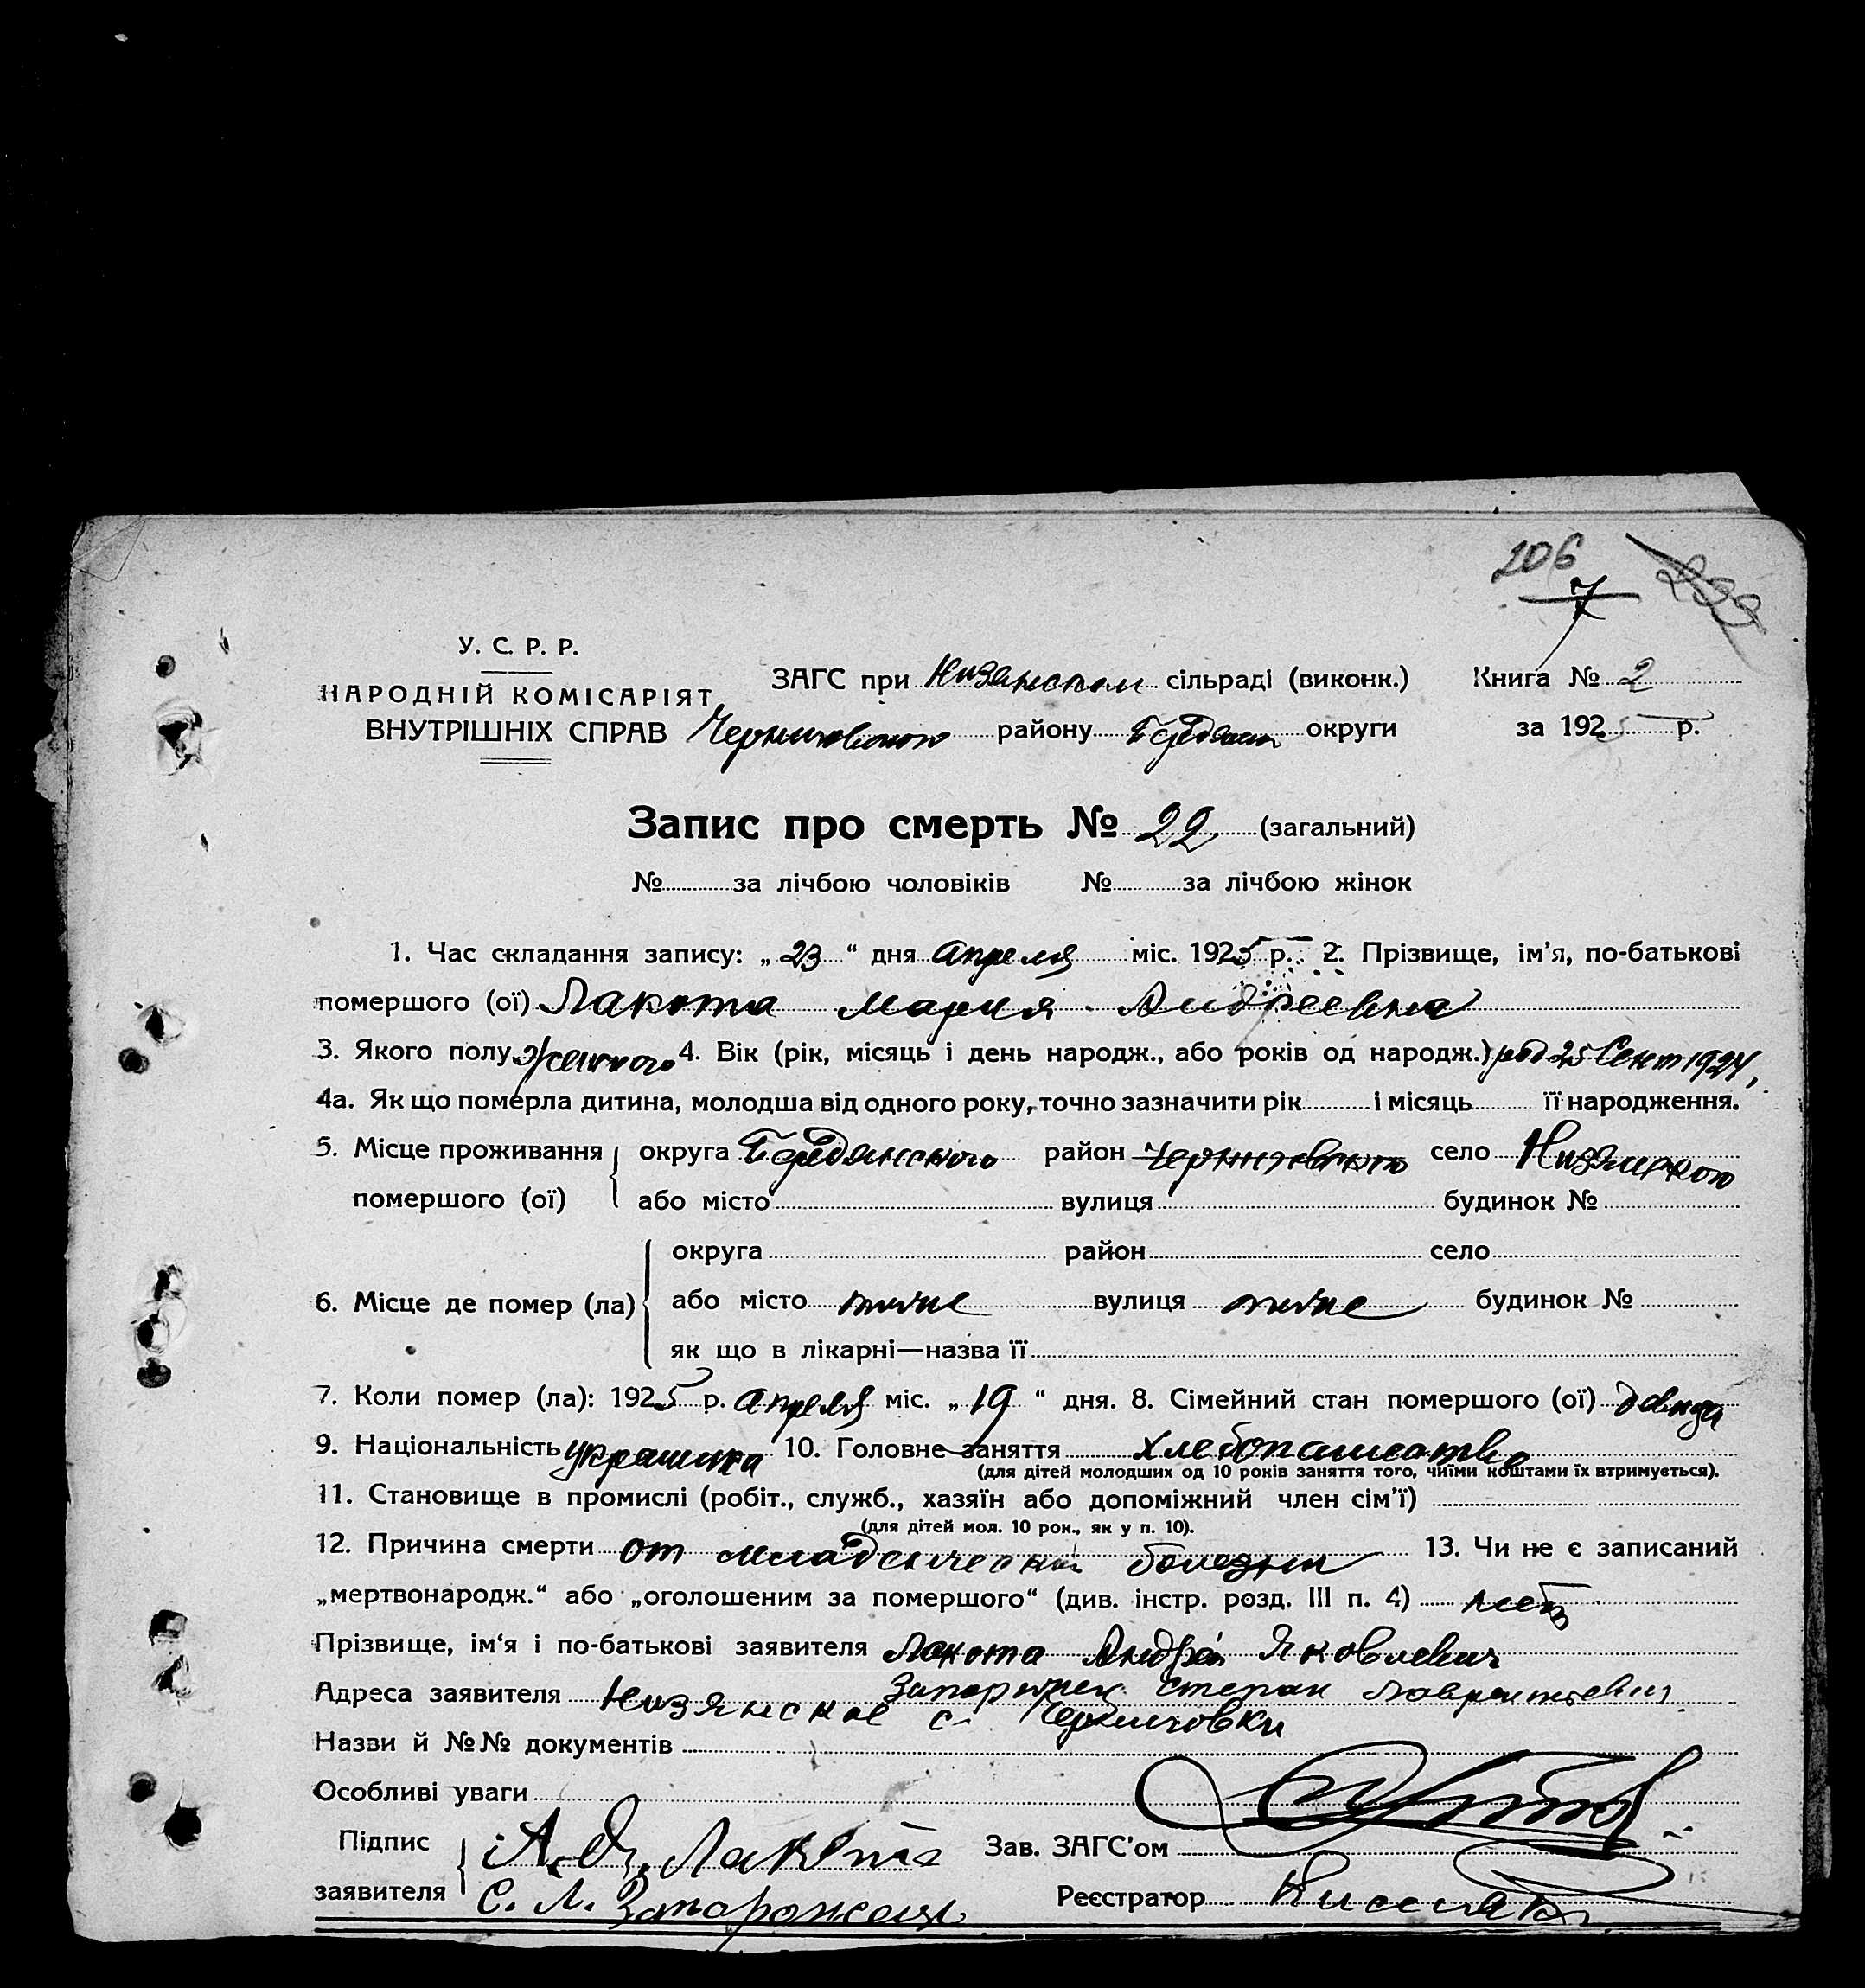 206
7
У. С. Р. Р.
НАРОДНІЙ КОМІСАРІЯТ
ВНУТРІШНІХ СПРАВ
ЗАГС при Низянском сільраді (виконк.) Книга № 2
Черниговского району Бердянск округи за 1925 р.
Запис про смерть № 22 (загальний)
№ за лічбою чоловіків № за лічбою жінок
1. Час складання запису: „ 23 “ дня апреля міс. 1925 р. 2. Прізвище, ім’я, по-батькові
помершого (ої) Лакота Мария Андреевна
3. Якого полу женского 4. Вік (рік, місяць і день народж., або років од народж.) род 25 Сент 1924,
4а. Як що померла дитина, молодша від одного року, точно зазначити рік і місяць її народження.
5. Місце проживання помершого (ої) округа Бердянского район Черниговского село Низянского
або місто вулиця будинок №
6. Місце де помер (ла) округа район село
або місто тоже вулиця тоже будинок №
як що в лікарні—назва її
7. Коли помер (ла): 1925 р. апреля міс. „ 19 “ дня. 8. Сімейний стан помершого (ої) девица
9. Національність украинка 10. Головне заняття хлебопашество
(для дітей молодших од 10 років заняття того, чиїми коштами їх втримується).
11. Становище в промислі (робіт., служб., хазяїн або допоміжний член сім’ї)
(для дітей мол. 10 рок., як у п. 10).
12. Причина смерти от младенческой болезни 13. Чи не є записаний
„мертвонародж.“ або „оголошеним за помершого“ (див. інстр. розд. III п. 4) нет
Прізвище, ім‘я і по-батькові заявителя Лакота Андрей Яковлевич
Запорожец Степан Лаврентьевич
Адреса заявителя Низянское с. Черниговки
Назви й №№ документів
Особливі уваги
Підпис заявителя А. Я. Лакота Зав. ЗАГС’ом
С. Л. Запорожец Реєстратор